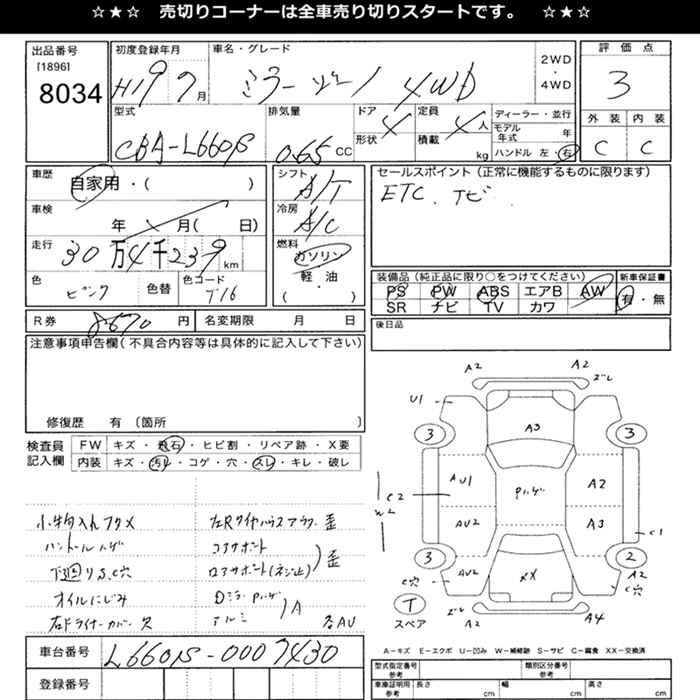 ☆★☆ 売切りコーナーは全車売り切りスタートです。 ☆★☆
出品番号
[1896]
8034
初度登録年月
H19 7月
車名・グレード
ミラージーノ 4WD
2WD
・
4WD
評価点
3
外装 内装
C C
型式
CBA-L660S
排気量
0.65 CC
ドア
形状
4
定員
積載
4人
kg
ディーラー・並行
モデル年式 年
ハンドル 左・右
車歴
自家用・( )
シフト
A/T
セールスポイント(正常に機能するものに限ります)
ETC. ナビ
車検
年 月( 日)
冷房
A/C
走行
30万4千239km
燃料
ガソリン
軽・油
( )
色
ピンク
色替
色コード
T16
装備品(純正品に限り○をつけてください)
新車保証書
PS PW ABS エアB AW
有・無
SR ナビ TV カワ
R券
8670円
名変期限 月 日
後日品
注意事項申告欄(不具合内容等は具体的に記入して下さい)
修復歴 有〔箇所 〕
検査員
記入欄
FW キズ・飛石・ヒビ割・リペア跡・X要
内装 キズ・汚れ・コゲ・穴・スレ・キレ・破し
小物入れフタメ
ハンドルハゲ
下廻りサ、C穴
オイルにじみ
右ドライナーカバー欠
左Rタイヤハウスアラウ、歪
コアサポート
ロアサポート(ネジ止)
歪
DミラーPハゲ
アルミ
A
各AU
A2
A2
ズレ
U1
3
3
A3
AU1
Pハゲ
A2
C2
W2
AU2
A3
C1
3
2
C穴
AU2
XX
A2
C穴
T
スペア
ズレ
A2
A4
A−キズ E−エクボ U−凹み W−補修跡 S−サビ C−腐食 XX−交換済
車台番号
L660S-0007430
登録番号
型式指定番号
参考
類別区分番号
参考
車庫証明用
参考
長さ cm
幅 cm
高さ cm